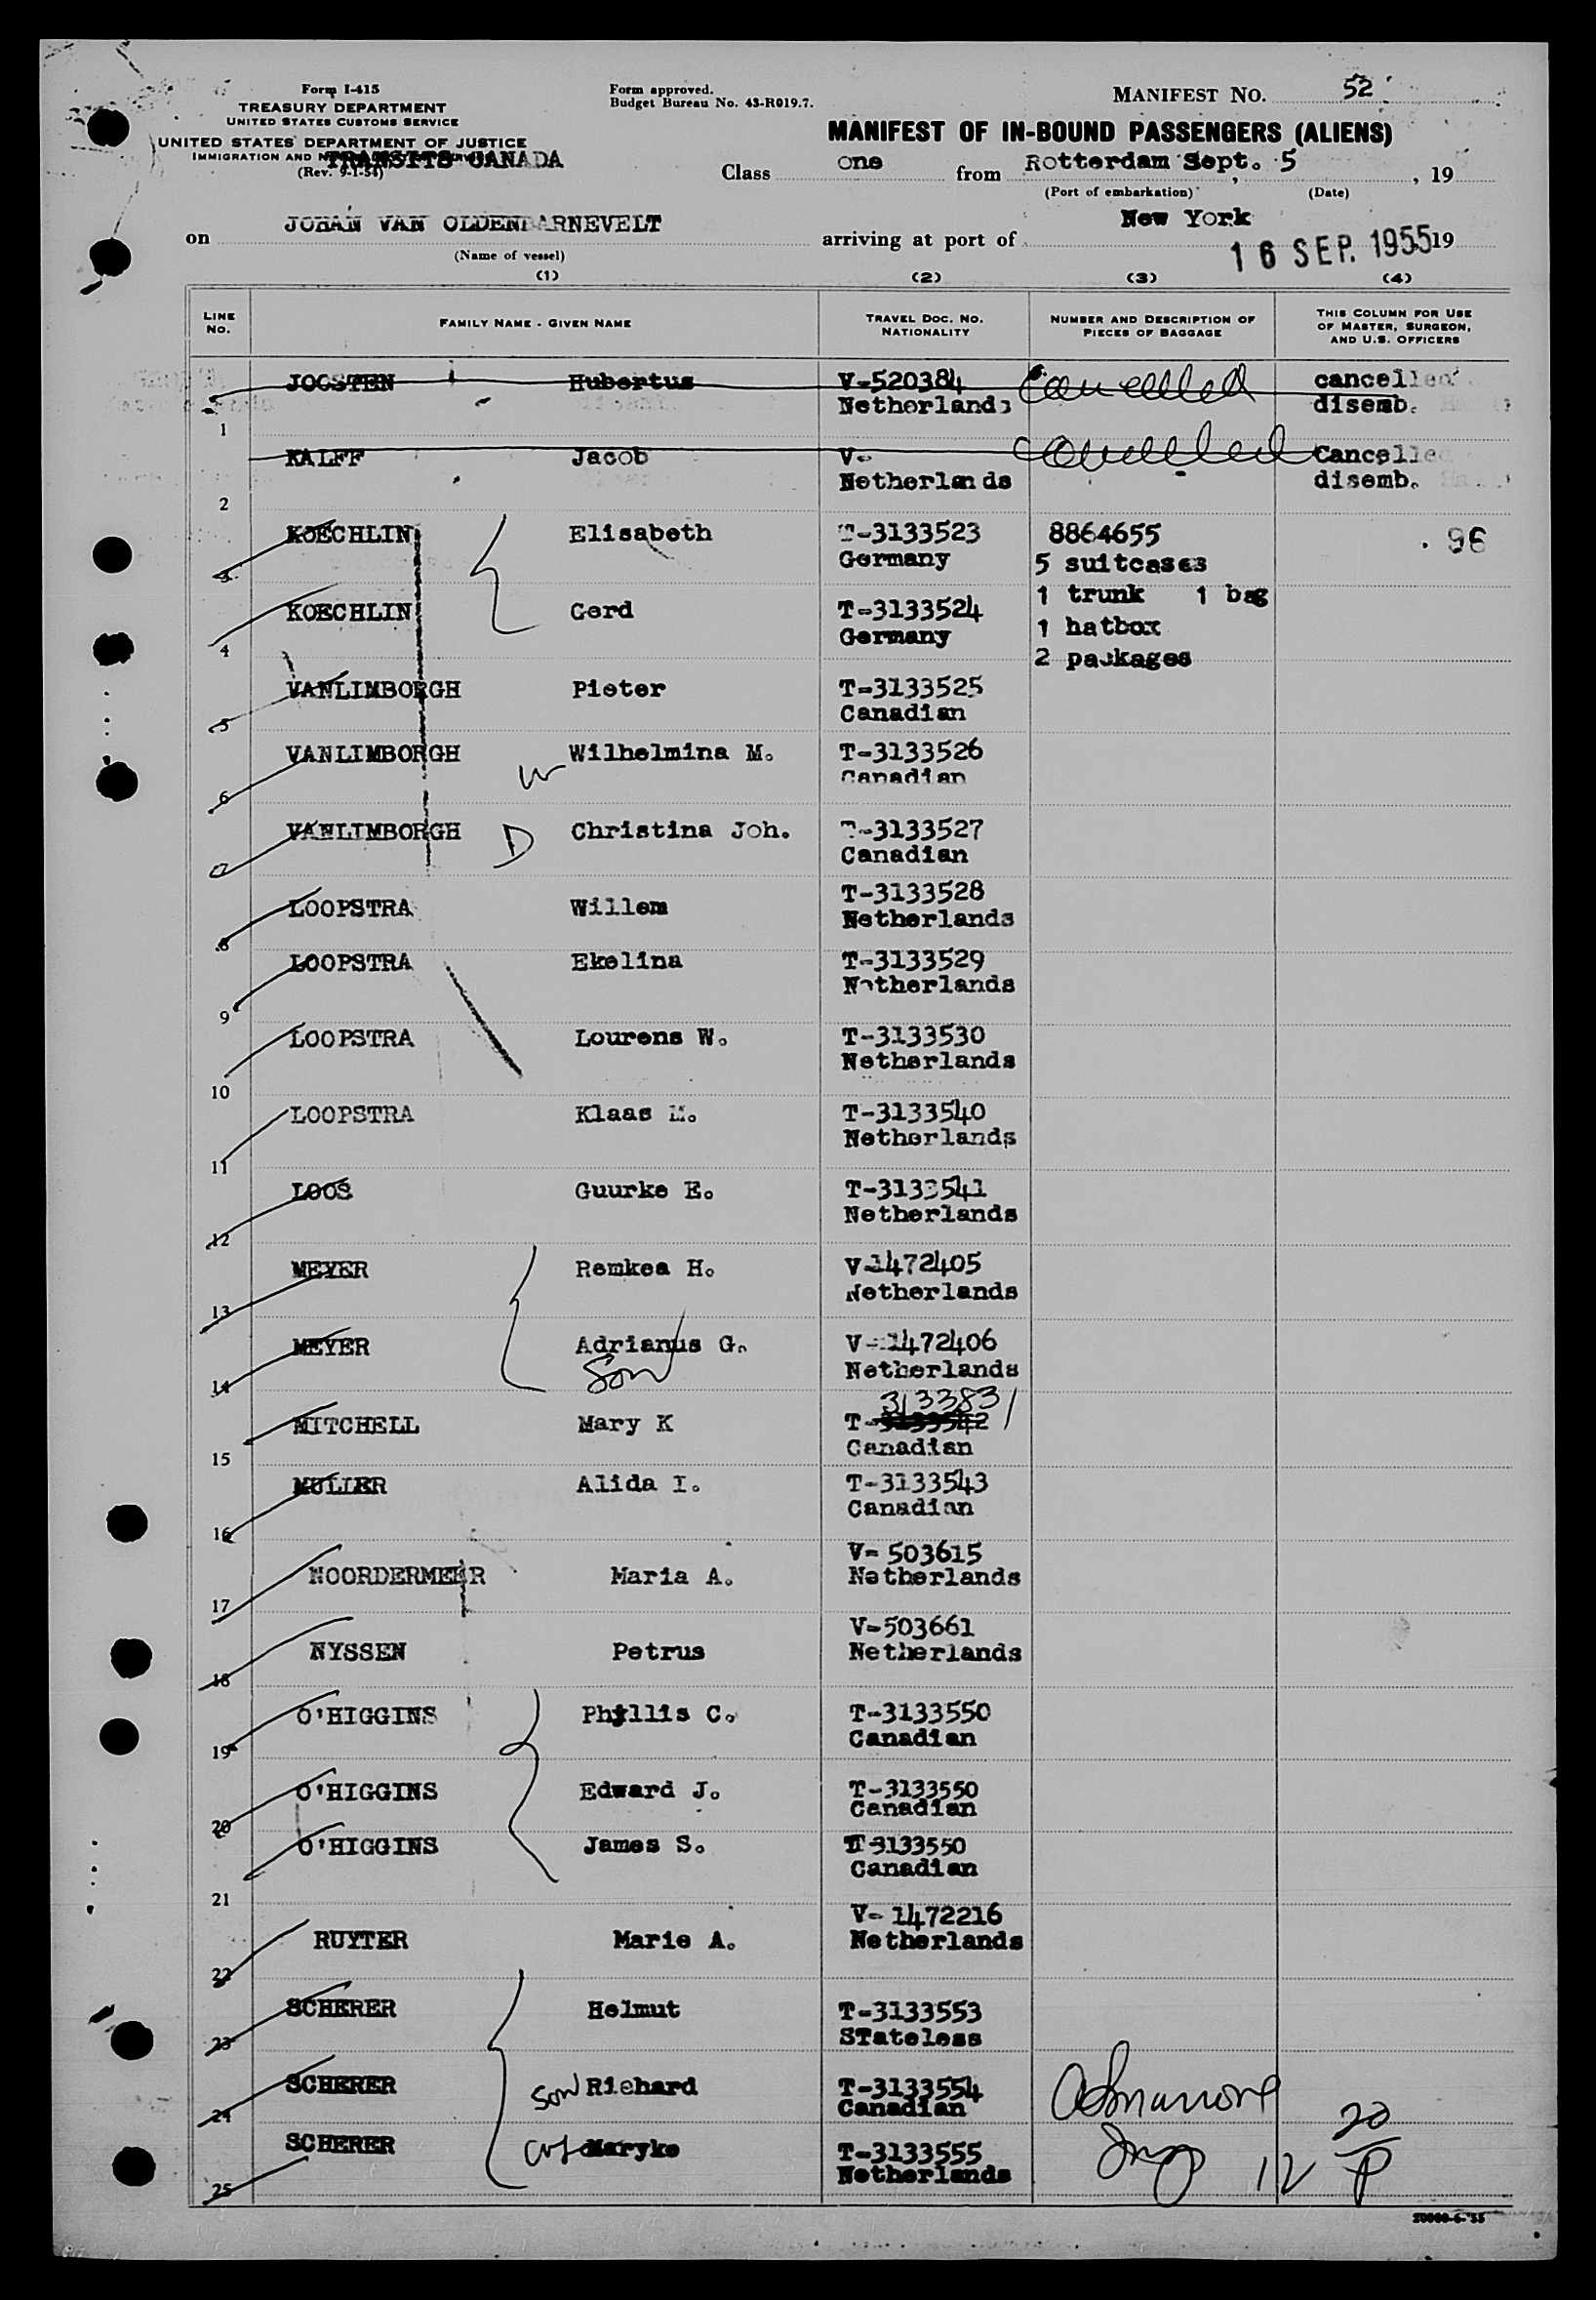 Form I-415
TREASURY DEPARTMENT
UNITED STATES CUSTOMS SERVICE
UNITED STATES DEPARTMENT OF JUSTICE
IMMIGRATION AND
TRANSITS CANADA
(Rev. 9-1-54)
Form approved.
Budget Bureau No. 43-R019.7.
MANIFEST NO. 52
MANIFEST OF IN-BOUND PASSENGERS (ALIENS)
Class one from Rotterdam Sept. 5, 19
(Port of embarkation) (Date)
on JOHAN VAN OLDENBARNEVELT arriving at port of New York
16 SEP. 1955 19
(Name of vessel)
(1) (2) (3) (4)
LINE NO. FAMILY NAME - GIVEN NAME TRAVEL DOC. NO. NATIONALITY NUMBER AND DESCRIPTION OF PIECES OF BAGGAGE THIS COLUMN FOR USE OF MASTER, SURGEON, AND U.S. OFFICERS
1 JOOSTEN Hubertus V-520384 Cancelled cancelled
Netherlands disemb.
2 KALFF Jacob V- Cancelled Cancelled
Netherlands disemb.
3 KOECHLIN Elisabeth T-3133523 8864655 .96
Germany 5 suitcases
1 trunk 1 bag
4 KOECHLIN Gerd T-3133524 1 hatbox
Germany 2 packages
5 VANLIMBORGH Pieter T-3133525
Canadian
6 VANLIMBORGH W Wilhelmina M. T-3133526
Canadian
7 VANLIMBORGH D Christina Joh. T-3133527
Canadian
8 LOOPSTRA Willem T-3133528
Netherlands
9 LOOPSTRA Ekelina T-3133529
Netherlands
10 LOOPSTRA Lourens W. T-3133530
Netherlands
11 LOOPSTRA Klaas M. T-3133540
Netherlands
12 LOOS Guurke E. T-3133541
Netherlands
13 MEYER Remkea H. V-1472405
Netherlands
14 MEYER Adrianus G. V-1472406
Son Netherlands
3133831
15 MITCHELL Mary K T-3133542
Canadian
16 MULLER Alida I. T-3133543
Canadian
17 NOORDERMEER Maria A. V-503615
Netherlands
18 NYSSEN Petrus V-503661
Netherlands
19 O'HIGGINS Phyllis C. T-3133550
Canadian
20 O'HIGGINS Edward J. T-3133550
Canadian
21 O'HIGGINS James S. T-3133550
Canadian
22 RUYTER Marie A. V-1472216
Netherlands
23 SCHERER Helmut T-3133553
STateless
24 SCHERER son Richard T-3133554
Canadian
25 SCHERER Maryke T-3133555
Netherlands
12 20
P
20000-6-'55